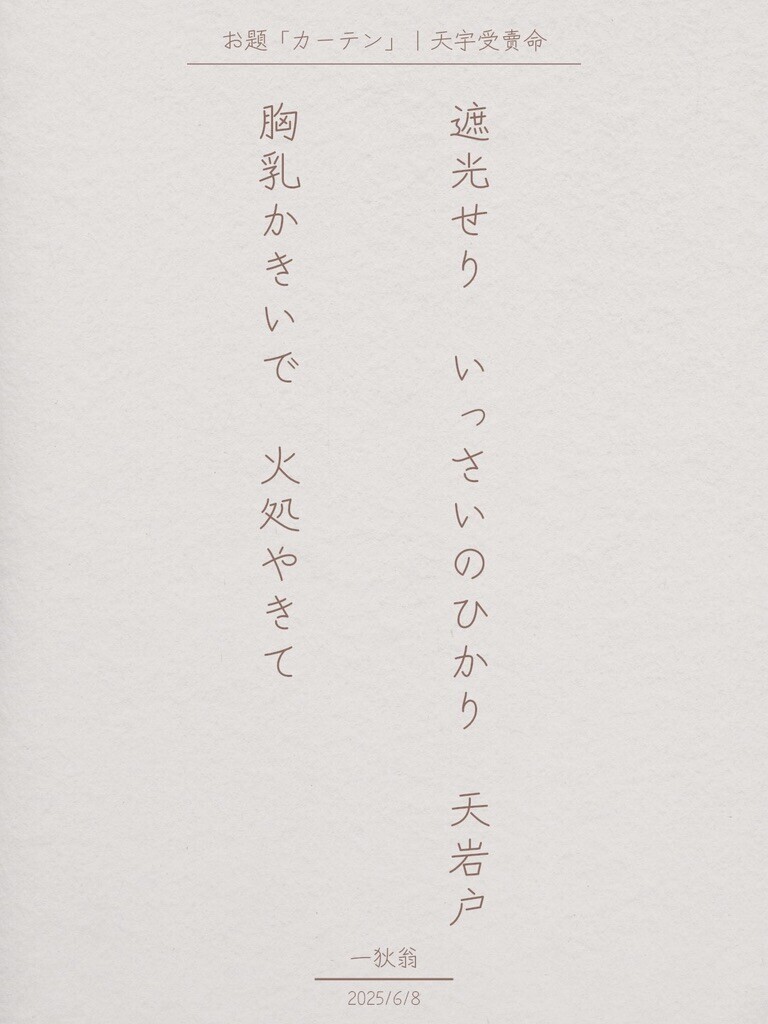 お題「カーテン」｜天宇受賣命
遮光せり　いっさいのひかり　天岩戸
胸乳かきいで　火処やきて
一狄翁
2025/6/8